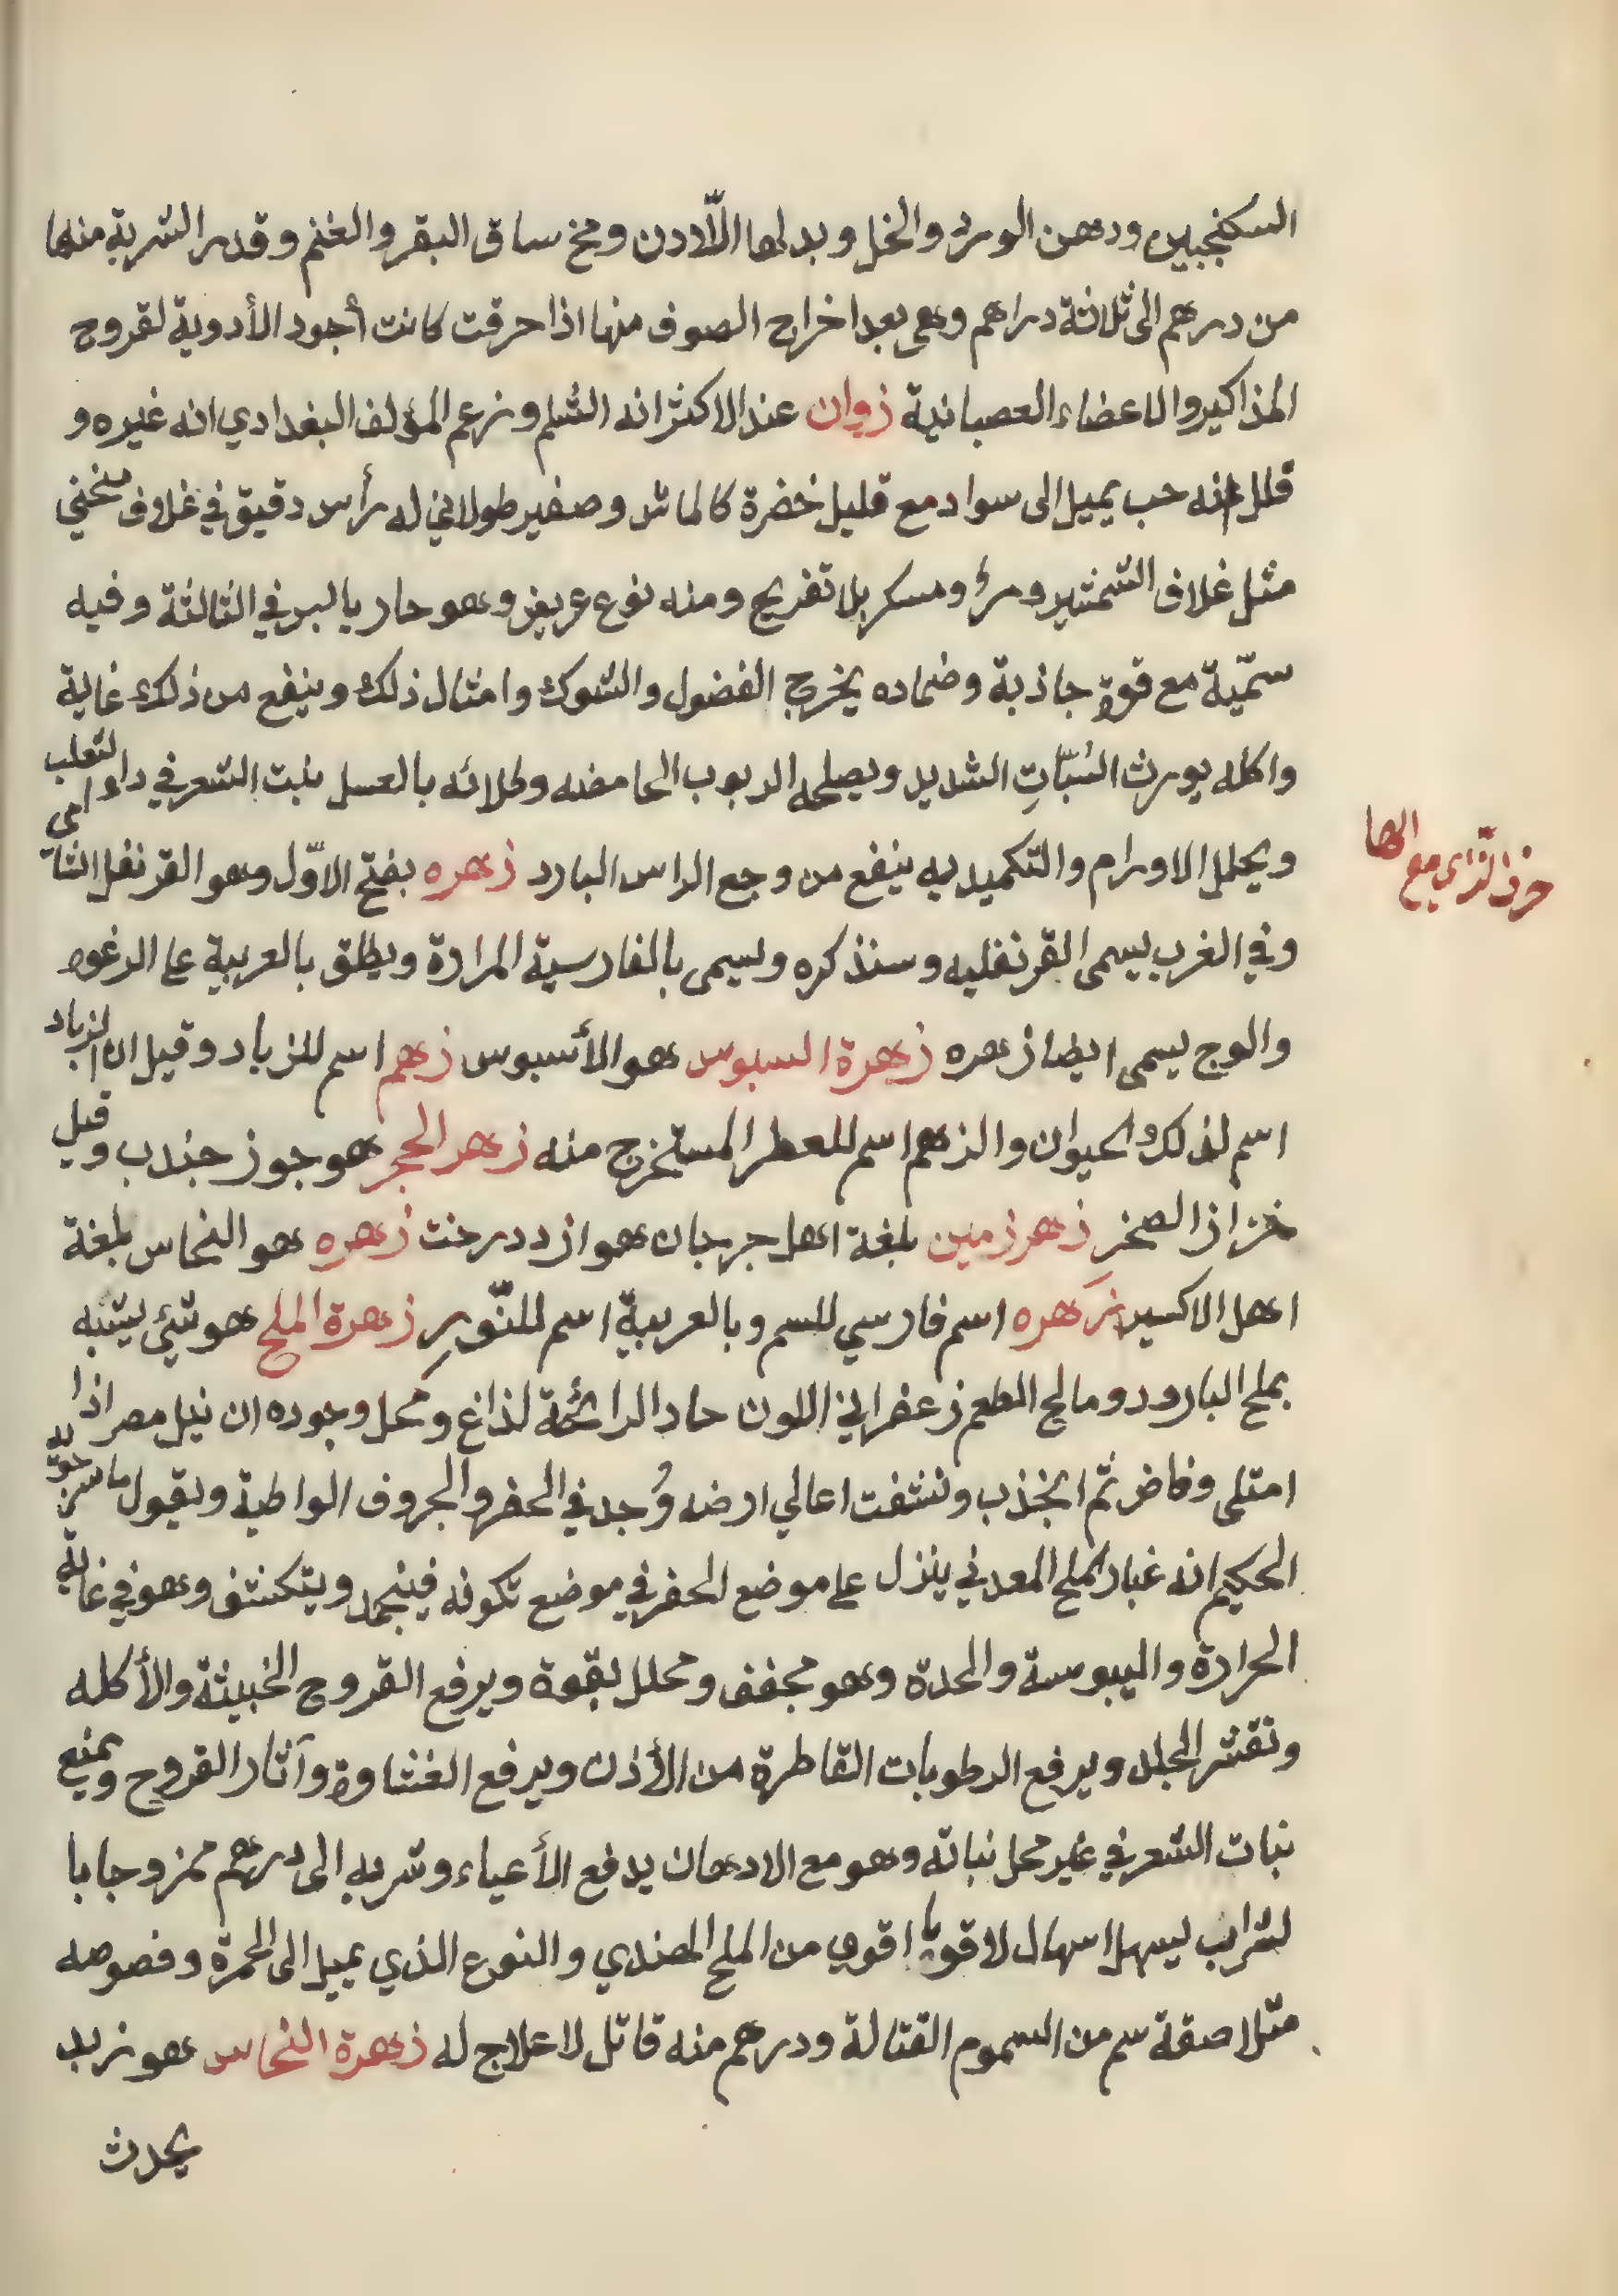 السكنجبين ودهن الورد والخل وبدلها اللّادن ومخ ساق البقر والغنم وقدر الشربة منها
من درهم الى ثلاثة دراهم وهى بعد اخراج الصوف منها اذا حرقت كانت أجود الأدوية لقروح
المذاكير والاعضاء العصبانية زوان عند الاكثر انه الشلم وزعم المؤلف البغدادي انه غيره و
قال انه حب يميل الى سواد مع قليل خضرة كالماش وصغير طولاني له رأس دقيق في غلاف منحني
مثل غلاف الشمشير ومرّ ومسكر بلا تفريح ومنه نوع عريض وهو حار يابس في الثالثة وفيه
سمّية مع قوة جاذبة وضماده يخرج الفضول والشوك وامثال ذلك وينفع من ذلك غاية
واكله يورث السُّبَاتِ الشديد ويصلحه الربوب الحامضه وطلائه بالعسل ينبت الشعر في داء الثعلب
ويحلل الاورام والتكميد به ينفع من وجع الراس البارد زهره بفتح الاوّل وهو القرنفل الشامي
وفي الغرب يسمى القرنفليه وسنذكره ويسمى بالفارسية المرارة ويطلق بالعربية على الرغوه
والوج يسمى ايضا زهره زهرة السبوس هو الأسبوس زهم اسم للزباد وقيل ان الزباد
اسم لذلك الحيوان والزهم اسم للعطر المستخرج منه زهر الحجر هو جوز جندب وقيل
حزاز الصخر زهر زمين بلغة اهل جرجان هو ازددرخت زهره هو النحاس بلغة
اهل الاكسير زَهره اسم فارسي للسم وبالعربية اسم للنّورِ زهرة الملح هو شئ يشبه
بملح البارود ومالح الطعم زعفراني اللون حاد الرائحة لذاغ ومحل وجوده ان نيل مصر اذا
امتلى وفاض ثم انجذب ونشفت اعالي ارضه وُجد في الحفر والجروف الواطية ويقول
الحكيم انه غبار الملح المعدني ينزل على موضع الحفر في موضع تكونه فينجمد ويتكثف وهو في غاية
الحرارة واليبوسة والحدة وهو مجفف ومحلل بقوة ويرفع القروح الخبيثة والأكله
وتقشر الجلد ويرفع الرطوبات القاطرة من الأذن ويرفع الغشاوة وآثار القروح ويمنع
نبات الشعر في غير محل نباته وهو مع الادهان يدفع الأعياء وشربه الى درهم ممزوجا با
لشراب يسهل اسهال لا قويا اقوى من الملح الهندي والنوع الذي يميل الى الحمرة وفصوصه
متلاصقة سم من السموم القتالة ودرهم منه قاتل لا علاج له زهرة النحاس هو زبد
يحدث
حرف الزاي مع الها